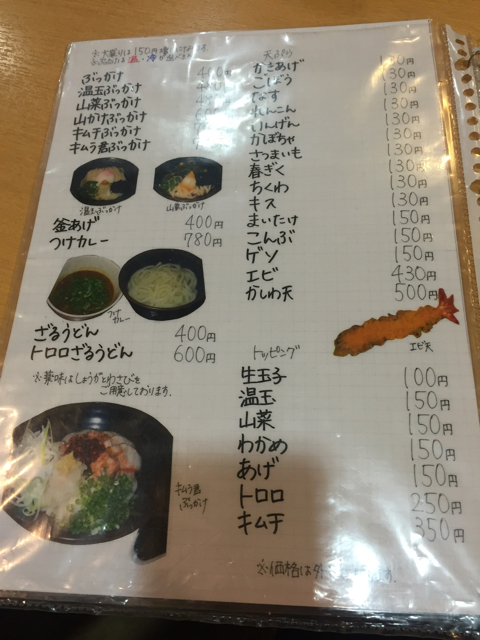 ※大盛りは150円増
ぶっかけ
温玉ぶっかけ
山菜ぶっかけ
山かけぶっかけ
キムチぶっかけ
キムラ君ぶっかけ
温玉ぶっかけ
山菜ぶっかけ
釜あげ 400円
つけカレー 780円
つけカレー
ざるうどん 400円
トロロざるうどん 600円
※薬味はしょうがとわさびを
ご用意しております.
キムラ君
ぶっかけ
天ぷら
かきあげ 130円
ごぼう 130円
なす 130円
れんこん 130円
いんげん 130円
かぼちゃ 130円
さつまいも 130円
春ぎく 130円
ちくわ 130円
キス 130円
まいたけ 150円
こんぶ 150円
ゲソ 150円
エビ 430円
かしわ天 500円
エビ天
トッピング
生玉子 100円
温玉 150円
山菜 150円
わかめ 150円
あげ 150円
トロロ 250円
キムチ 350円
※価格は